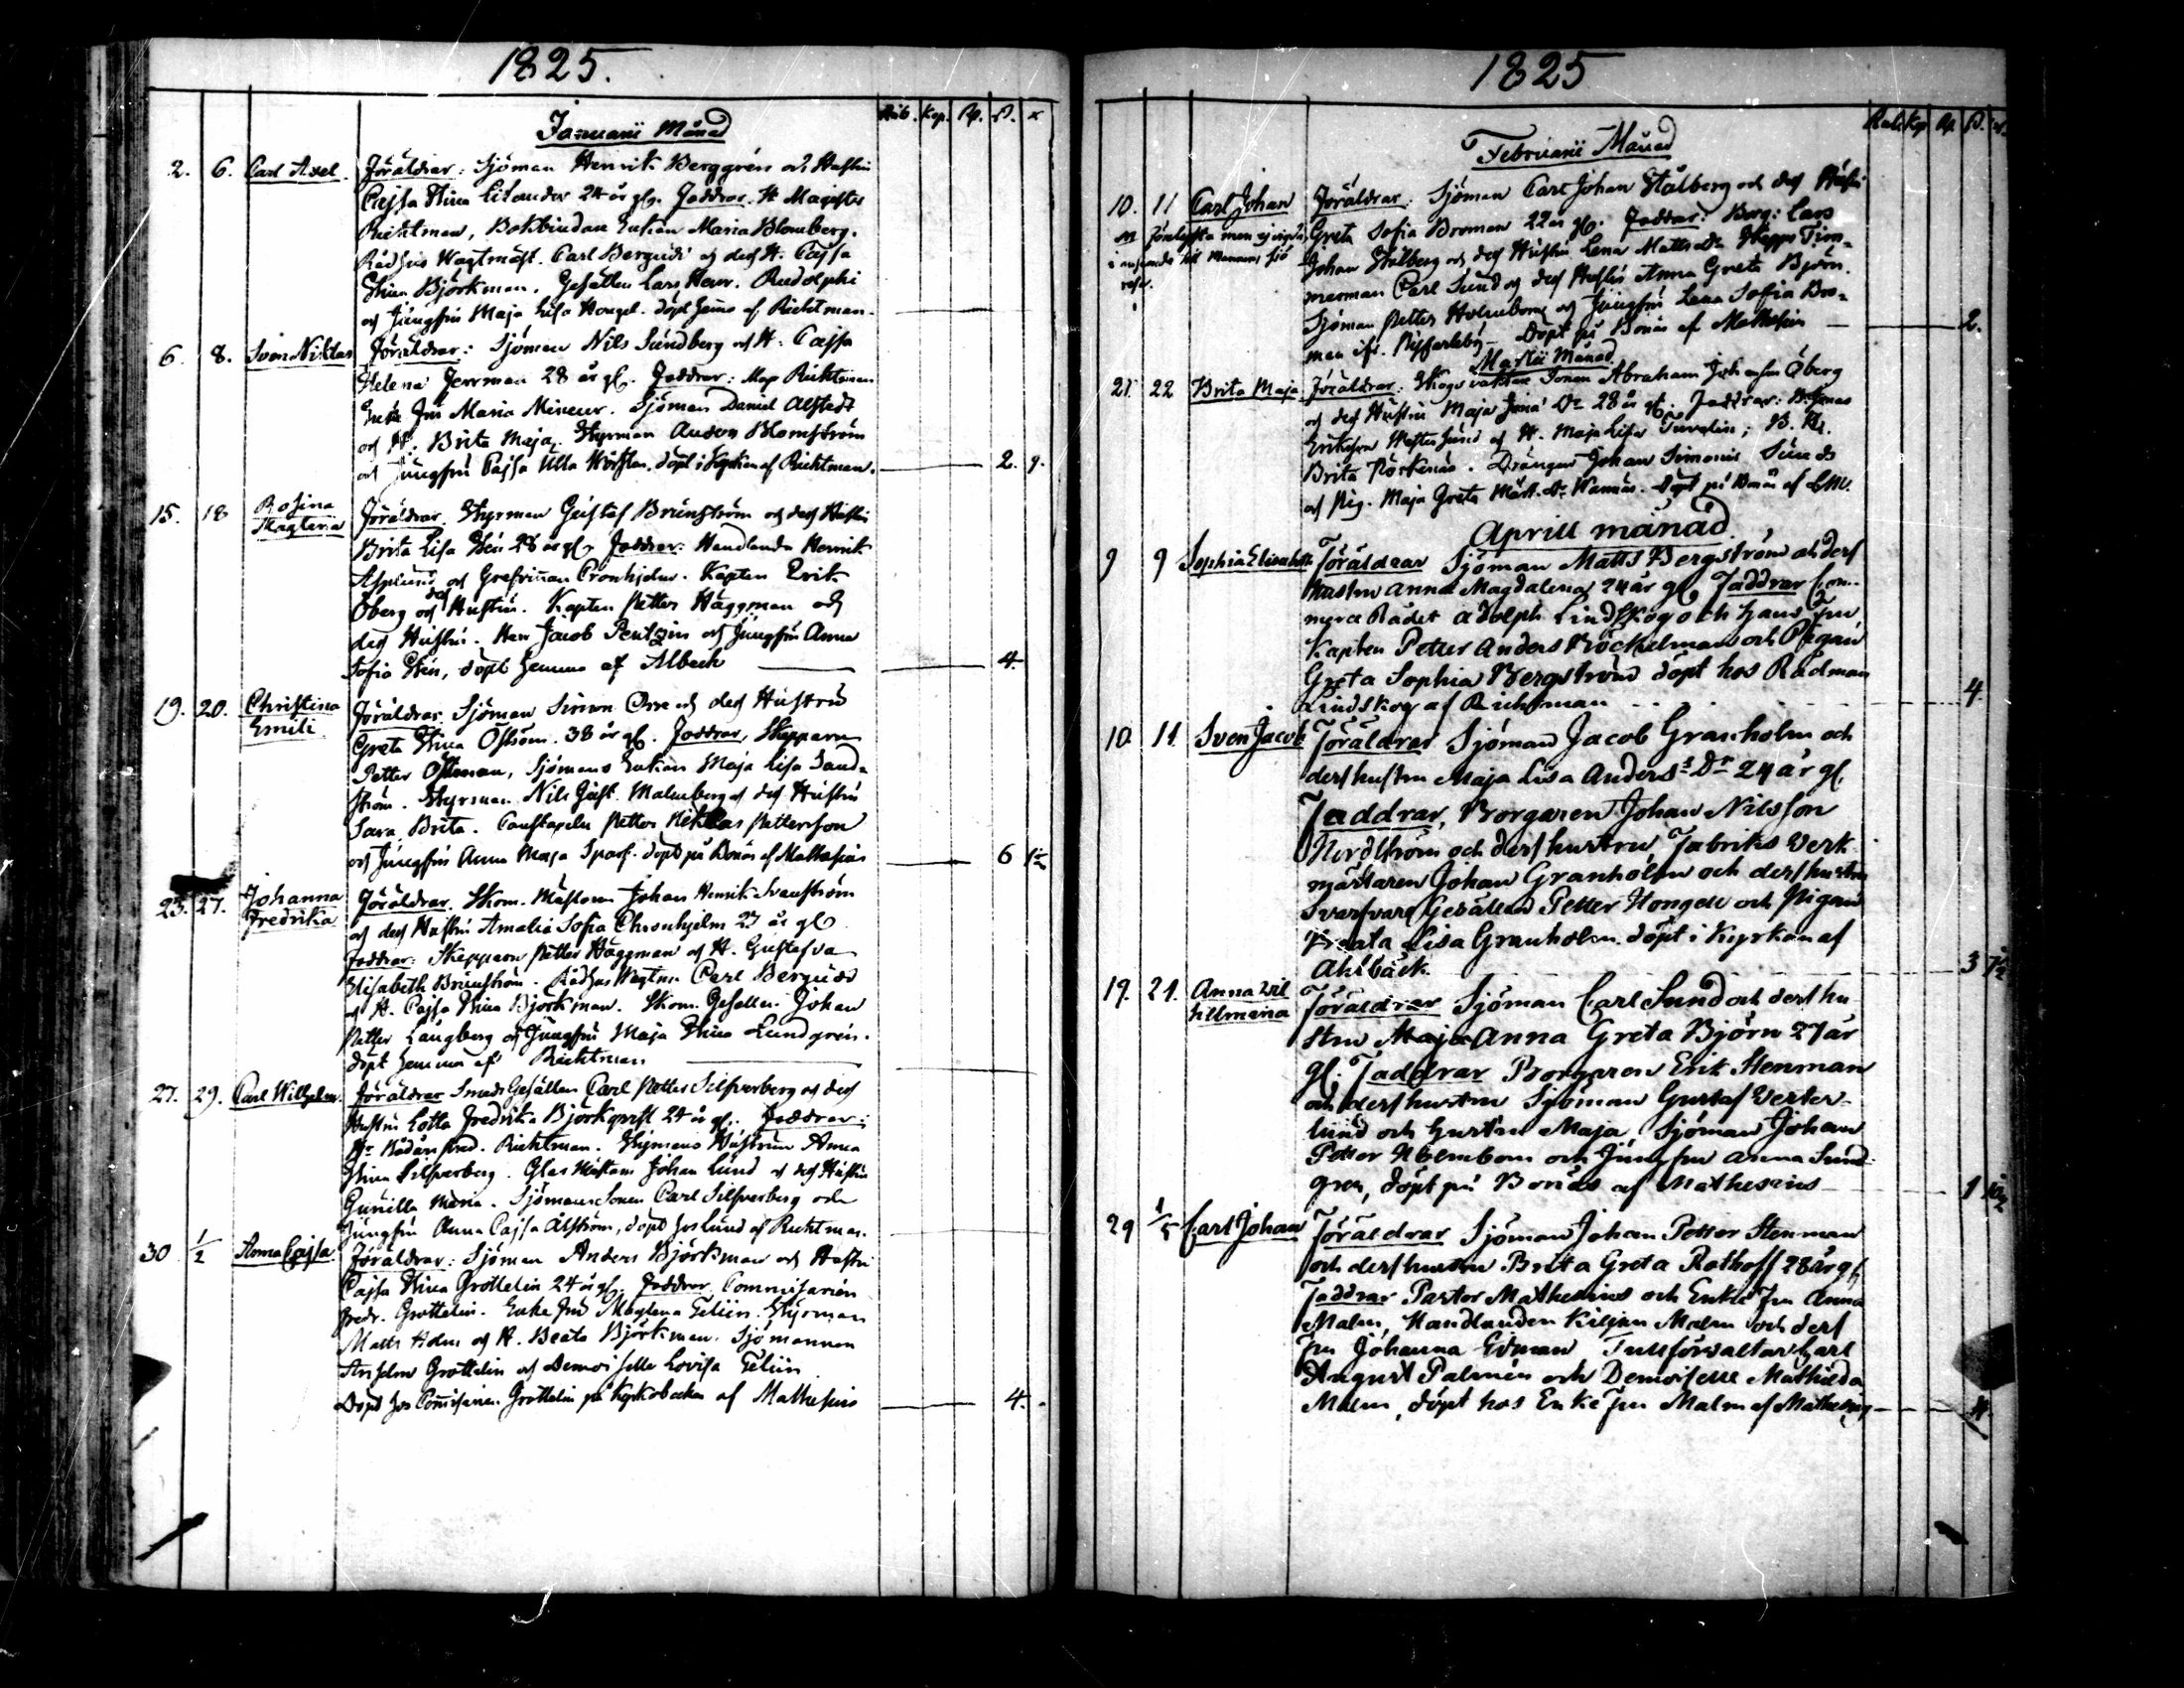 1825.
Rub. Kop. Rp. D. x
Januarii Månad
2. 6. Carl Axel. Föräldrar: Sjöman Henrik Berggrén och Hustru
Cajsa Stina Lilander 24 år gl. Faddrar. H Magister
Richtman, Bokbindare Enkan Maria Blomberg.
Rådhus Wagtmäst. Carl Bergudd och dess H. Cajsa
Stina Björkman. Gesällen Lars Henr. Rudolphi
och Jungfru Maja Lisa Hongel. döpt hema af Richtman.
6. 8. Sven Niklas Föräldrar: Sjöman Nils Sundberg och H. Cajsa
Helena Jerrman 28 år gl. Faddrar: Mag Richtman
Enke Fru Maria Mineur. Sjöman Daniel Alstedt
och H. Brita Maja. Styrman Anders Blomström
och Jungfru Cajsa Ulla döpt i Kyrkan af Richtman. 2. 9.
15. 18 Rosina
Magdalena Föräldrar. Styrman Gustaf Brunström och dess Hustru
Brita Lisa Stén 28 år gl. Faddrar: Handlande Henrik
Asplund och Grefvinnan Cronhjelm. Kapten Erik
Öberg och dess Hustru. Kapten Petter Häggman och
dess Hustru. Herr Jacob Pentzin och Jungfru Anna
Sofia Stén, döpt hemma af Alback 4.
19. 20. Christina
Emili Föräldrar. Sjöman Simon Orre och dess Hustru
Greta Stina Öström. 38 år gl. Faddrar, Skepparn
Petter Östman, Sjömans Enkan Maja Lisa Sand-
ström. Styrman Nils Gust. Malmberg och dess Hustru
Sara Brita. Petter Niklas Pettersson
och Jungfru Anna Maja Sparf. döpt på Bonäs af Mathesius 6 1½
25. 27. Johanna
Fredrika Föräldrar. Skom. Mästaren Johan Henrik Svanström
och dess Hustru Amalia Sofia Chronhjelm 27 år gl.
Faddrar: Skepparn Petter Häggman och H. Gustafva
Elisabeth Brunström. Rådhus Wagtm. Carl Bergudd
och H. Cajsa Stina Björkman. Skom. Gesellen Johan
Petter Långberg och Jungfru Maja Stina Lundgren.
döpt hemma af Richtman
27. 29. Carl Wilhelm. Föräldrar Smeds Gesällen Carl Petter Silfverberg och dess
Hustru Lotta Fredrika Björkqvist 24 år gl. Faddrar:
Hr Rådm Fred. Richtman. Styrmans Hustrun Anna
Stina Silfverberg. Glas Mästarn Johan Lund och dess Hustru
Gunilla Maria. Sjömans Sonen Carl Silfverberg och
Jungfru Anna Cajsa Alström, döpt hos Lund af Richtman.
30 1/2 Anna Cajsa Föräldrar: Sjöman Anders Björkman och Hustru
Cajsa Stina Grottelin 24 år gl. Faddrar, Commissarien
Fredr. Grottelin. Enke Fru Magdlena Telin. Styrman
Matts Holm och H. Beata Björkman. Sjömannen
Anselm Grottelin och Demoiselle Lovisa Telin
Döpt hos Commissarien Grottelin på Kyrkobacken af Mathesius 4.
1825
Rub. Kop Rp D. x.
Februarii Månad
10. 11 Carl Johan Föräldrar: Sjöman Carl Johan Stålberg och dess Hustru
Greta Sofia Broman 22 år gl. Faddrar: Borg: Lars
Johan Stålberg och dess Hustru Lena Matts Dr Skepps Tim-
merman Carl Sund och dess Hustru Anna Greta Björn.
Sjöman Petter Holmbom och Jungfru Lena Sofia Bro-
man Döpt på Bonäs af Mathesius 2.
m förelyfta men ej vigda
i anseende till Mannens sjö
resa.
Martii Månad
21 22 Brita Maja. Föräldrar: Skogs vaktare Sonen Abraham Johansson Öberg
och dess Hustru Maja Dr 28 år gl. Faddrar: B. Jonas
Eriksson Westersund och H. Maja Lisa
Brita Pörkenäs. Drängen Johan Simons Sunds
och Pig. Maja Greta Matts. Dr Wannäs. Döpt på Bonäs af CM.
Aprill månad
9 9 Sophia Elisabeth Föräldrar Sjöman Matts Bergström och dess
Hustru Anna Magdalena 24 år gl. Faddrar Com-
merce Rådet Adolph Lindskog och hans fru
Kapten Petter Anders Böckelman och Pigan
Greta Sophia Bergström döpt hos Rådman
Lindskog af Richtman 4
10 11 Sven Jacob Föräldrar Sjöman Jacob Granholm och
dess hustru Maja Lisa Anders Dr 24 år gl.
Faddrar, Borgaren Johan Nilsson
Nordström och dess hustru Fabriks Verk
mästaren Johan Granholm och dess hustru
Svarfvare Gesällen Petter Hongell och Pigan
Beata Lisa Granholm. döpt i Kyrkan af
Ahlbäck 3 7½
19. 21. Anna Wil
hellmina Föräldrar Sjöman Carl Sund och dess hu
stru Maja Anna Greta Björn 27 år
gl. Faddrar Borgaren Erik Stenman
och dess hustru Sjöman Gustaf Vester-
lund och hustru Maja, Sjöman Johan
Petter Holmbom och Jungfru Anna Sund-
gren, döpt på Bonäs af Mathesius 1 10½
29 1/5 Carl Johan Föräldrar Sjöman Johan Petter Stenman
och dess hustru Brita Greta Rothoff 28 år gl
Faddrar Pastor Mathesius och Enke fru Anna
Malm, Handlanden Kiljan Malm och dess
fru Johanna Edman Tullförvaltar Carl
August Palmén och Demoiselle Mathilda
Malm, döpt hos Enke fru Malm af Mathesius 4.